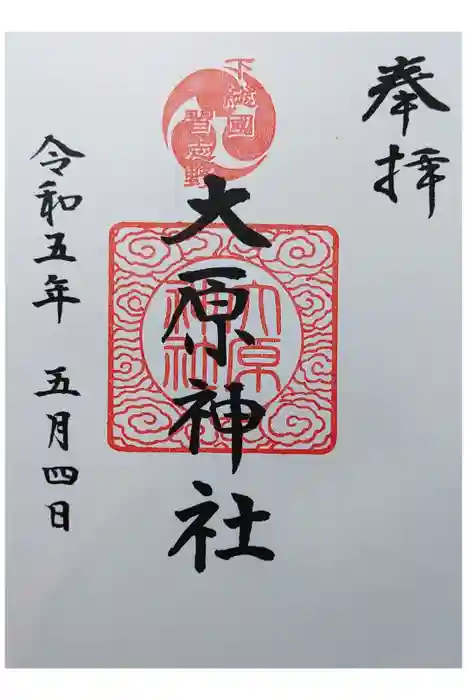 奉拝
下総國
習志野
大原神社
大原
神社
令和五年 五月四日